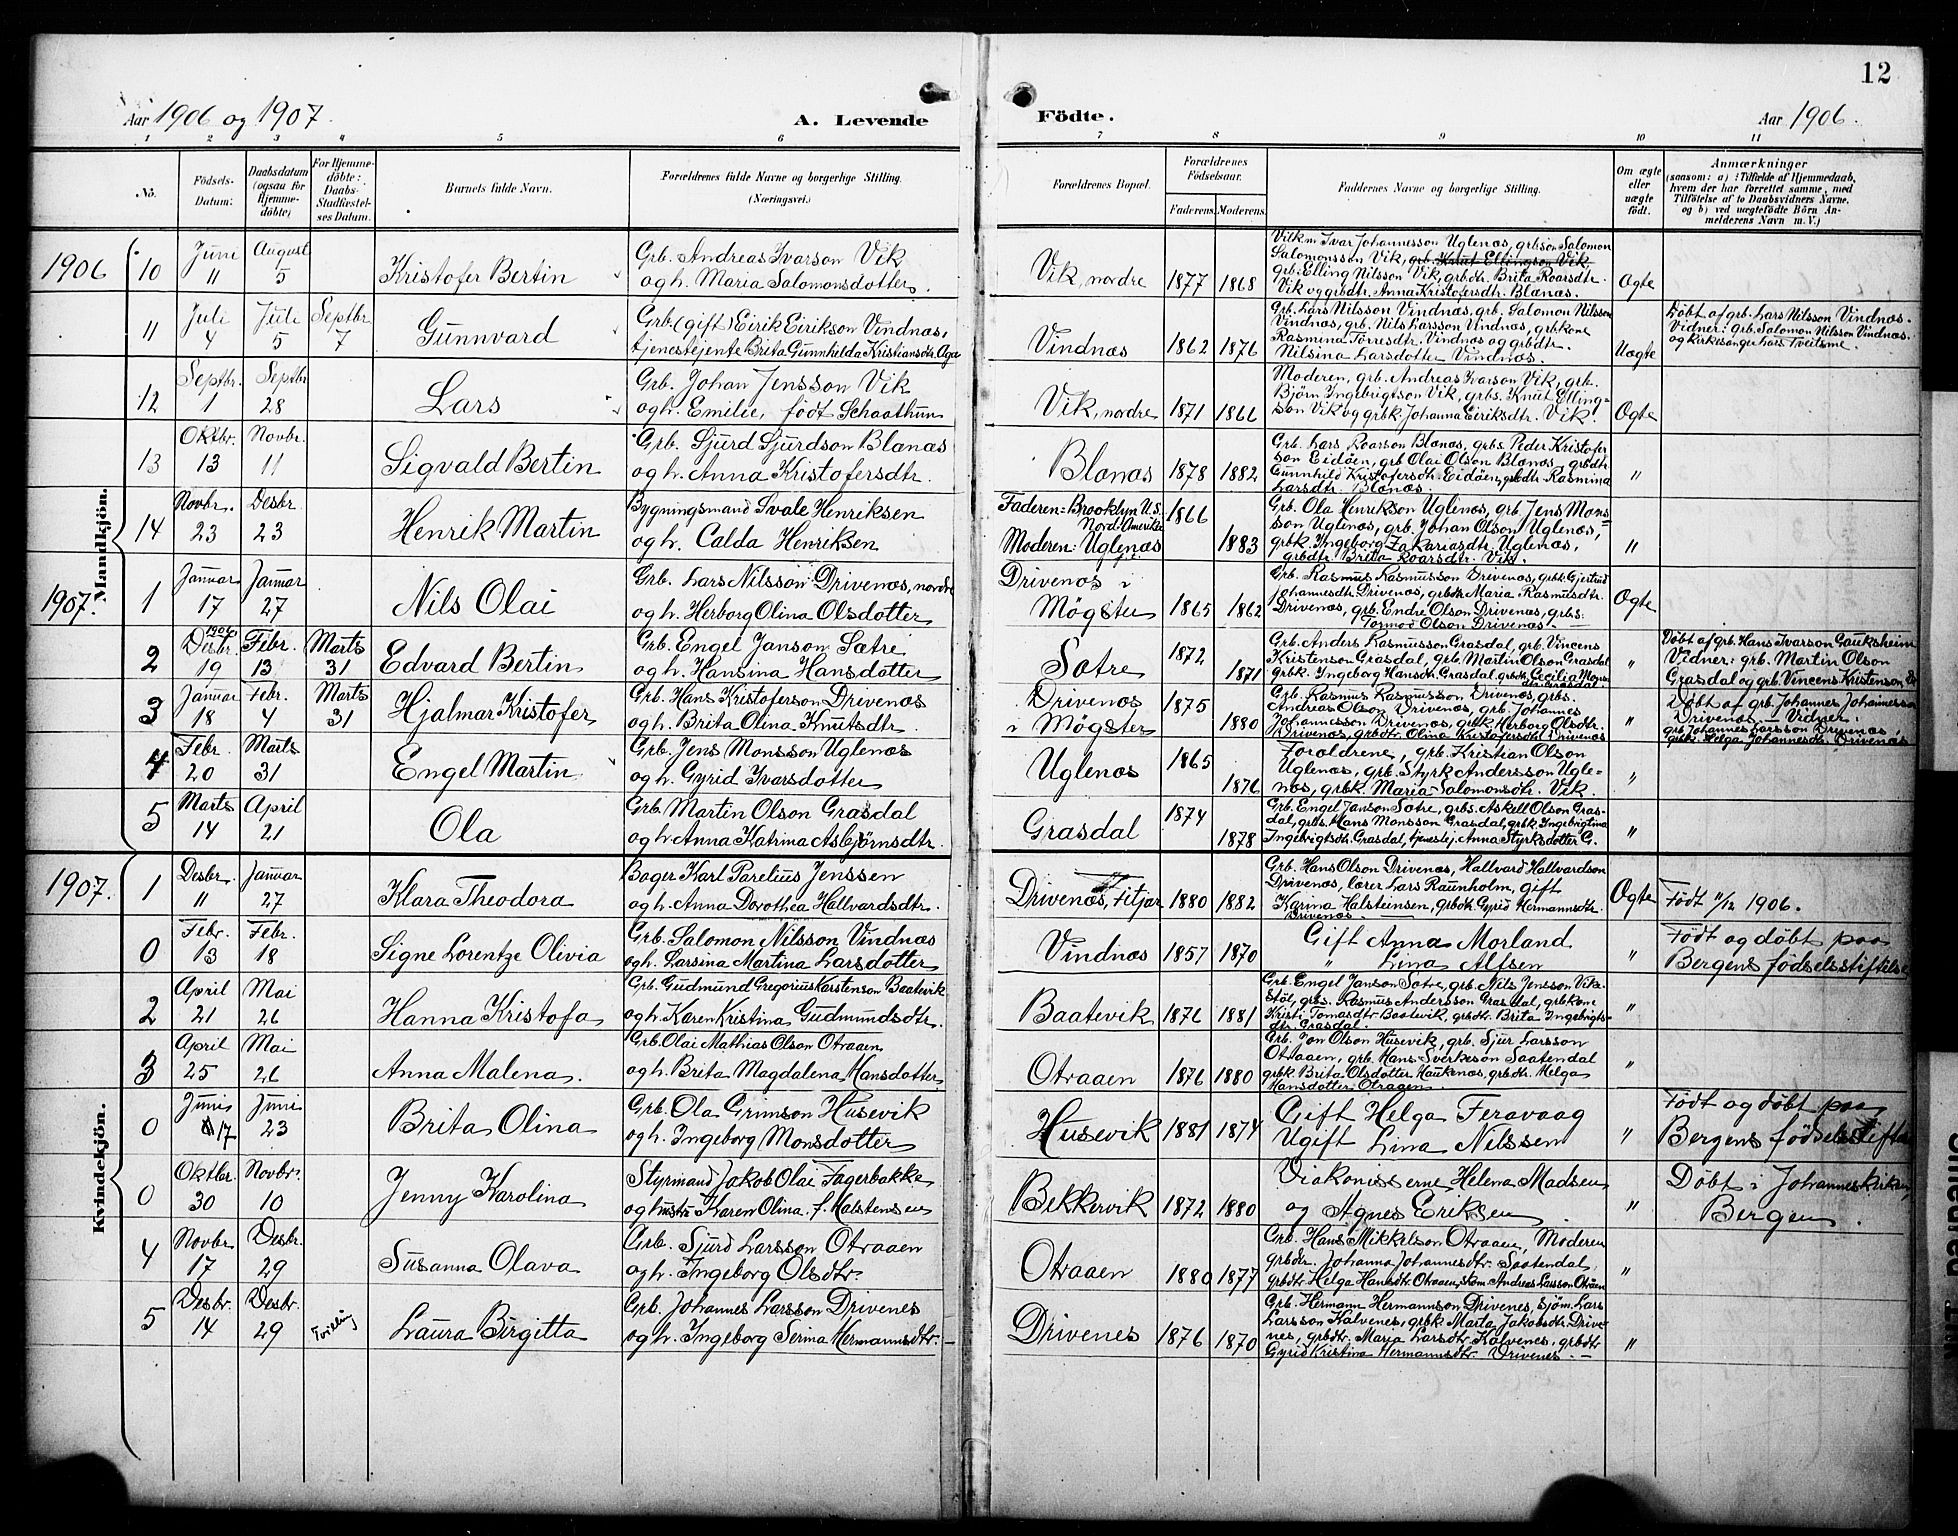 12
Aar 1906 og 1907.
A. Levende
Födte.
Aar 1906.
1 2 3 4 5 6
7 8 9 10 11
No.
Födsels-Datum.
Daabsdatum (ogsaa for Hjemme-döbte)
For Hjemme-döbte: Daabs-Stadfæstel-ses Datum.
Barnets fulde Navn.
Forældrenes fulde Navne og borgerlige Stilling. (Næringsvei.)
Forældrenes Bopæl.
Forældrenes Födselsaar.
Faderens. Moderens.
Faddernes Navne og borgerlige Stilling.
Om ægte eller uægte født.
Anmærkninger
(saasom: a) i Tilfælde af Hjemmedaab, hvem der har forrettet samme, med Tilföielse af to Daabsvidners Navne, og b) ved uægtefödte Börn An-melderens Navn m. V.)
Mandkjön.
1906
10 Juni 11 August 5 Kristofer Bertin
Grb. Andreas Ivarson Vik
og h. Maria Salomonsdotter
Vik, nordre 1877 1868
Vilkm Ivar Johannesson Uglenæs, grbson Salomon
Salomonsson Vik, grb. Knut Ellingson Vik,
grb. Elling Nilsson Vik, grbdtr. Brita Roarsdtr.
Vik og grbdtr. Anna Kristofersdtr. Blænæs.
Ogte
11 Juli 4 Juli 5 Septbr 7 Gunnvard
Grb. (gift) Eirik Eirikson Vindnæs,
tjenestejente Brita Gunnhilda Kristiansdtr. Aga
Vindnæs 1862 1876
Grb. Lars Nilsson Vindnæs, grb. Salomon Nilsson
Vindnæs, grb. Nils Larsson Vindnæs, grbkone
Rasmina Torresdtr. Vindnæs og grbdtr.
Nilsina Larsdotter Vindnæs.
Uægte
Døbt af grb. Lars Nilsson Vindnæs.
Vidner: grb. Salomon Nilsson Vindnæs
og Kirkesanger Lars Tveitsme.
12 Septbr. 1 Septbr 28 Lars
Grb. Johan Jensson Vik
og h. Emilie, født Schaathun
Vik, nordre 1871 1866
Moderen, grb. Andreas Ivarson Vik, grb.
Bjørn Ingebrigtson Vik, grbs. Knut Elling-
son Vik og grbk. Johanna Eiriksdtr. Vik.
Ogte
13 Oktbr. 13 Novbr. 11 Sigvald Bertin
Grb. Sjurd Sjurdson Blænæs
og h. Anna Kristofersdtr.
Blænæs 1878 1882
Grb. Lars Roarson Blænæs, grbs. Peder Kristofer
son Eidøen, grb Olai Olson Blænæs, grbdtr.
Gunnhild Kristofersdtr. Eidøen, grbdtr. Rasmina
Larsdtr. Blænæs.
"
14 Novbr. 23 Desbr. 23 Henrik Martin
Bygningsmand Svale Henriksen
og h. Calda Henriksen
Faderen: Brooklyn U.S.
Nord Amerika 1866
Moderen: Uglenæs 1883
Grb. Ola Henrikson Uglenæs, grb. Jens Mons=
son Uglenæs, grb. Johan Olson Uglenæs,
grbk. Ingeborg Zakariasdtr. Uglenæs,
grbdtr. Brita Roarsdtr. Vik.
"
1907.
1 Januar 17 Januar 27 Nils Olai
Grb. Lars Nilsson Drivenæs, nordre
og h. Herborg Olina Olsdotter
Drivenæs i
Møgster 1865 1862
Grb. Rasmus Rasmusson Drivenæs, grbk. Gjertrud
Johannesdtr. Drivenæs, grbdtr. Maria Rasmusdtr.
Drivenæs, grb. Endre Olson Drivenæs, grbs.
Tormod Olson Drivenæs.
Ogte
2 1906 Desbr. 19 Febr. 13 Marts 31 Edvard Bertin
Grb. Engel Janson Sætre
og h. Hansina Hansdotter
Sætre 1872 1871
Grb. Anders Rasmusson Grasdal, grb. Vincens
Kristenson Grasdal, grb. Martin Olson Grasdal
Grbk. Ingeborg Hansdtr. Grasdal, grbdtr. Cecilia Mons
dtr. Grasdal.
"
Døbt af grb. Hans Ivarson Gauksheim
Vidner: grb. Martin Olson
Grasdal og grb. Vincens Kristenson
3 Januar 18 Febr. 4 Marts 31 Hjalmar Kristofer
Grb. Hans Kristoferson Drivenæs
og h. Brita Olina Knutsdtr.
Drivenæs
i Møgster 1875 1880
Grb. Rasmus Rasmusson Drivenæs, grbs.
Andreas Olson Drivenæs, grb. Johannes
Johannesson Drivenæs, grbk. Herborg Olsdtr.
Drivenæs, grbdtr. Olina Kristofersdtr. Drivenæs
"
Døbt af grb. Johannes Johannesson
Drivenæs. — Vidner:
grb. Johannes Larsson Drivenæs,
grbk. Helga Johannesdtr. Drivenæs
4 Febr. 20 Marts 31 Engel Martin
Grb. Jens Monsson Uglenæs
og h. Gyrid Ivarsdotter
Uglenæs 1865 1876
Forældrene, grb. Kristian Olson
Uglenæs, grb. Styrk Andersson Ugle=
næs, grbk. Maria Salomonsdtr. Vik.
"
5 Marts 14 April 21 Ola
Grb. Martin Olson Grasdal
og h. Anna Katrina Asbjörnsdtr.
Grasdal 1874 1878
Grb. Engel Janson Sætre, grbs. Askell Olson Gras-
dal, grbs. Hans Monsson Grasdal, grbk. Ingebrigtina
Ingebrigtsdtr. Grasdal, tjenestej. Anna Styrksdotter G.
"
Kvindekjön.
1907.
1 Desbr. 11 Januar 27 Klara Theodora
Bager Karl Parelius Jenssen
og h. Anna Dorothea Hallvardsdtr.
Drivenæs, Fitjar 1880 1882
Grb. Hans Olson Drivenæs, Hallvard Hallvardson
Drivenæs, lærer Lars Raunholm, gift
Karina Halsteinsen, grbdtr. Gyrid Hermannsdtr.
Drivenæs.
Ogte
Født 11/12 1906.
0 Febr. 13 Febr. 18 Signe Lorentze Olivia
Grb. Salomon Nilsson Vindnæs
og h. Larsina Martina Larsdotter
Vindnæs 1857 1870
Gift Anna Morland
" Lina Alfsen
"
Født og døbt paa
Bergens fødselsstiftelse
2 April 21 Mai 26 Hanna Kristofa
Grb. Gudmund Gregorius Karstenson Baatevik
og h. Karen Kristina Gudmundsdtr.
Baatevik 1876 1881
Grb. Engel Janson Sætre, grb. Nils Jensson Vik-
støl, grbs. Rasmus Andersson Grasdal, grbkone
Kristi Tomasdtr. Baatevik, grbdtr. Brita Ingebrigts-
dtr. Grasdal.
"
3 April 25 Mai 26 Anna Malena.
Grb. Olai Mathias Olson Otraaen
og h. Brita Magdalena Hansdotter
Otraaen 1876 1880
Grb. Jon Olson Husevik, grb. Sjur Larsson
Otraaen, grb. Hans Sverkeson Saatendal
grbk. Brita Olsdotter Haukenæs, grbdtr. Helga
Hansdotter Otraaen.
"
0 Juni 17 Juni 23 Brita Olina
Grb. Ola Grimson Husevik
og h. Ingeborg Monsdotter
Husevik 1881 1874
Gift Helga Feravaag
Ugift Lina Nilssen
"
Født og døbt paa
Bergens fødselsstiftelse
0 Oktbr. 30 Novbr. 10 Jenny Karolina
Styrmand Jakob Olai Fagerbakke
og hustr. Karen Olina f. Halstensen
Bekkervik 1872 1880
Diakonisserne Helena Madsen
og Agnes Eriksen
"
Døbt i Johanneskirken,
Bergen.
4 Novbr. 17 Desbr. 29 Susanna Olava
Grb. Sjurd Larsson Otraaen
og h. Ingeborg Olsdtr.
Otraaen 1880 1877
Grb. Hans Mikkelson Otraaen, Moderen
grbdtr. Johanna Johannesdtr. Saatendal,
grbdtr. Helga Hansdtr. Otraaen, skom. Andreas Larsson Otraaen
"
5 Desbr. 14 Desbr. 29 Tvilling Laura Birgitta
Grb. Johannes Larsson Drivenes
og h. Ingeborg Serina Hermannsdtr.
Drivenes 1876 1870
Grb. Hermann Hermannson Drivenes, sjøm. Lars
Larsson Kalvenes, grbk. Marta Jakobsdtr. Drive-
nes, grbdtr. Maria Larsdtr. Kalvenes, grbdtr.
Gyrid Kristina Hermannsdtr. Drivenes. —
"